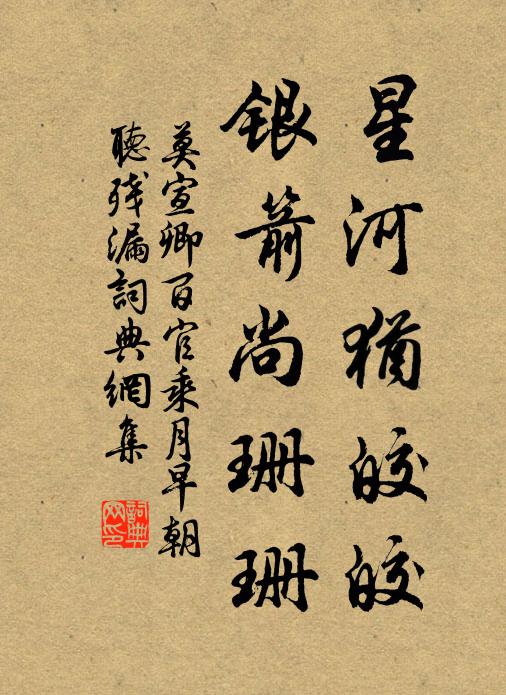 星河猶皎皎
銀箭尚珊珊
莫宣卿百官乘月早朝
聽殘漏詞典網集
詞典
网印